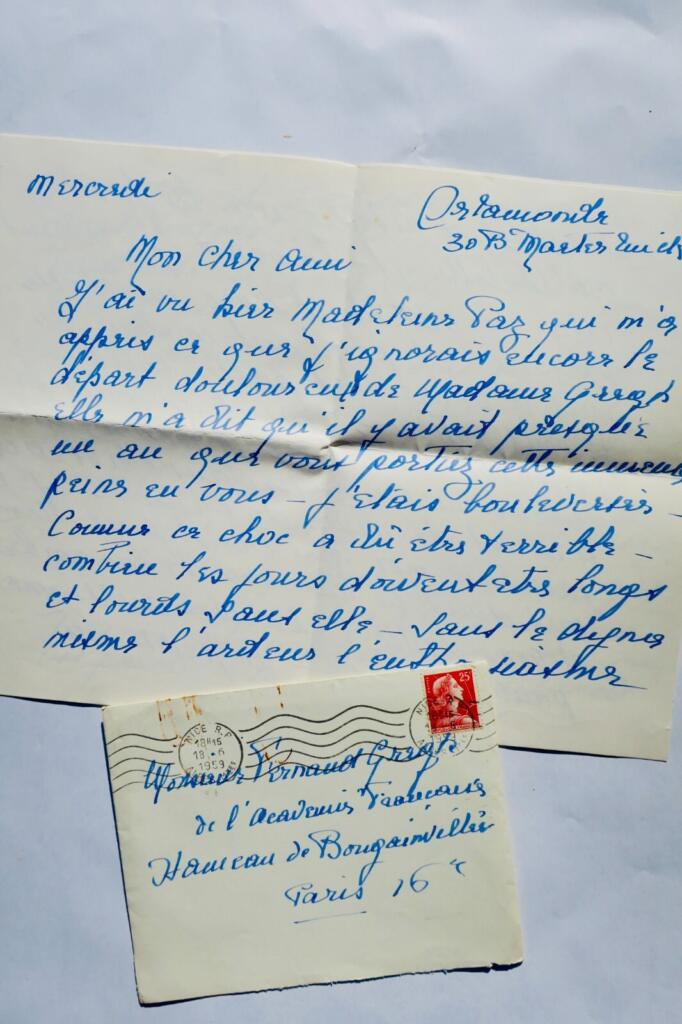 Mercredi
Orlamonde
30 Bd Maeterlinck
Mon cher ami
J'ai vu hier Madeleine Paz qui m'a
appris ce que j'ignorais encore le
départ douloureux de Madame Gregh
elle m'a dit qu'il y avait presque
un an que vous portiez cette immense
peine en vous – j'étais bouleversée –
Comme ce choc a dû être terrible –
combien les jours doivent être longs
et lourds sans elle – sans le
même l'ardeur l'enthousiasme
NICE R.P.
18H15
18 · 6
1959
25
Monsieur Fernand Gregh
de l'Academie Francaise
Hameau de Bougainvillier
Paris 16e